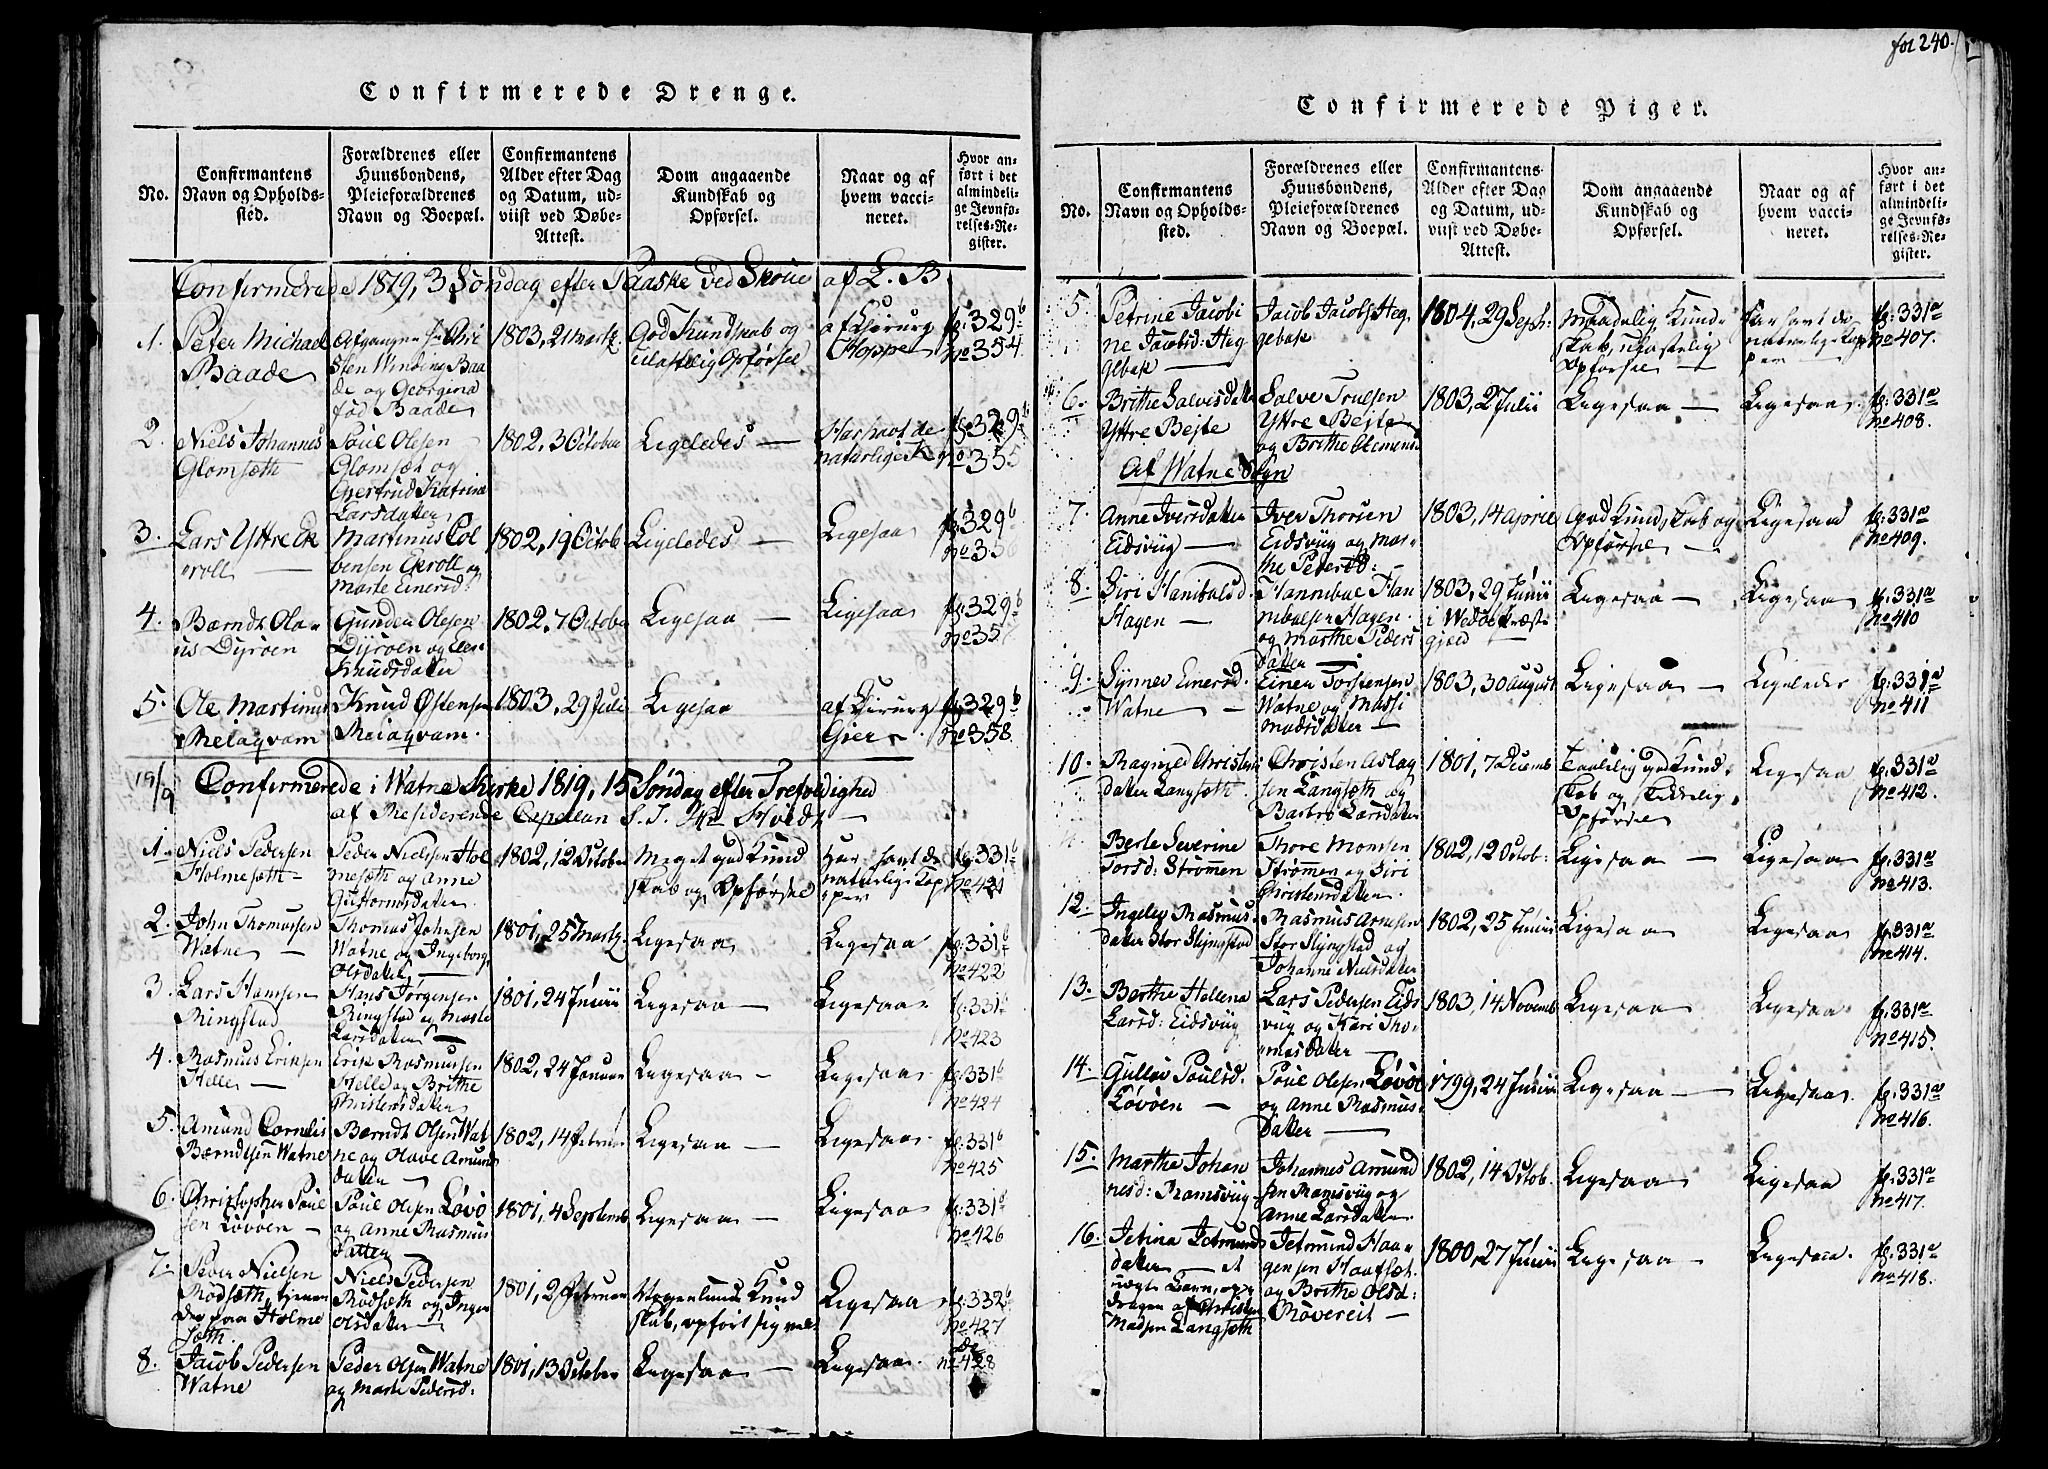 Confirmerede Drenge.
No.
Confirmantens
Navn og Opholds-
sted.
Forældrenes eller
Huusbondens,
Pleieforældrenes
Navn og Boepæl.
Confirmantens
Alder efter Dag
og Datum, ud-
viist ved Døbe-
Attest.
Dom angaaende
Kundskab og
Opførsel.
Naar og af
hvem vacci-
neret.
Hvor an-
ført i det
almindeli-
ge Jevnfø-
relses-Re-
gister.
Confirmerede 1819, 3 Søndag efter Paaske ved Skoue af L. B
1. Peter Michael
Baade
Sten Winding Baa
de og Georgina
fød Baade
1803, 21 Martz.
God Kundskab og
Opførsel
af Chirurg
Hoppe
fg: 329b
No 354
2. Niels Johannes
Glomsæth
Poul Olesen
Glomsæt og
Gjertrud Katrina
Larsdatter
1802, 3 October
Ligeledes —
Har havt de
naturlige K
fg 329b
No 355
3. Lars Yttre Ek
roll —
Martinus Col
bensen Ekroll og
Marte Einersd:
1802, 19 Octob
Ligeledes —
Ligesaa
fg: 329b
No 356
4. Berndt Ola-
us Dyrøen
Gunder Olesen
Dyrøen og
Knudsdatter
1802, 7 October
Ligesaa —
Ligesaa
fg: 329b
No 357
5. Ole Martinus
Melaqvam
Knud Østensen
Melaqvam.
1803, 29 Juli
Ligesaa
af Chirurg
fg: 329b
No 358.
19/9 Confirmerede i Watne Kirke 1819, 15 Søndag efter Trefoldighed
af Residerende Capellan S. J. Hvidt —
1. Niels Pedersen
Holmesæth
Peder Nielsen Hol
mesæth og Anne
Guttormsdatter
1802, 12 October
Meget god Kund
skab og Opførsel
Har havt de
naturlige Kop
per
fg: 331b
No 421
2. John Thomassen
Watne —
Thomas Johnsen
Watne og Ingeborg
Olsdatter —
1801, 25 Martz.
Ligesaa
Ligesaa
fg: 331b
No 422
3. Lars Hansen
Ringstad
Hans Jørgensen
Ringstad og Marte
Larsdatter —
1801, 24 Junii
Ligesaa —
Ligesaa
fg: 331b
No 423
4. Rasmus Eriksen
Helle —
Erik Rasmussen
Helle og Brithe
Christensdatter
1802, 24 Januar
Ligesaa —
Ligesaa
fg: 331b
No 424
5. Amund Cornelis
Berndtsen Watne
Berndt Olsen Wat
ne og Olave Amunds
datter —
1802, 14 Februar
Ligesaa —
Ligesaa
fg: 331b
No 425
6. Christopher Poul
sen Løvøen —
Poul Olesen Løvø
og Anne Rasmus
datter
1801, 4 Septemb
Ligesaa —
Ligesaa
fg: 331b
No 426
7. Peder Nielsen
Rødsæth, tjenen
de paa Holme
sæth.
Niels Pedersen
Rødsæth og Inger
Olsdatter —
1801, 2 Februar
Kund
skab, opført sig vel
Ligesaa
fg: 332b
No 427
8. Jacob Pedersen
Watne
Peder Olsen Watne
og Marte Pedersd:
1801, 13 October
Ligesaa —
Ligesaa
No 428
fol 240.
Confirmerede Piger.
No.
Confirmantens
Navn og Opholds-
sted.
Forældrenes eller
Huusbondens,
Pleieforældrenes
Navn og Boepæl.
Confirmantens
Alder efter Dag
og Datum, ud-
viist ved Døbe-
Attest.
Dom angaaende
Kundskab og
Opførsel.
Naar og af
hvem vacci-
neret.
Hvor an-
ført i det
almindeli-
ge Jevnfø-
relses-Re-
gister.
5. Petrine Jacobi
ne Jacobsd: Heg
gebak —
Jacob Jacobs Heg
gebak
1804, 29 Septr:
Maadelig Kund-
skab, ulastelig
Opførsel —
Har havt de
naturlige Kop
per —
fg: 331a
No 407.
6. Brithe Salvesdatter
Yttre Bejte
Salve Trulsen
Yttre Bejte
og Brithe Clemends
1803, 2 Julii
Ligesaa —
Ligesaa
fg: 331a
No 408.
Af Watne Sogn
7. Anne Iversdatter
Eidsviig —
Iver Thorsen
Eidsviig og Mar-
the Petersd: —
1803, 14 April
God Kundskab og
Opførsel —
Ligesaa
fg: 331a
No 409.
8. Siri Hanibalsd
Hagen —
Hannibal Han
nibalsen Hagen
og Marthe Peders
datter —
1803, 29 Junii
i Wedøe Præste
gjeld —
Ligesaa —
Ligesaa
fg: 331a
No 410
9. Synnev Einersd.
Watne —
Einer Torstensen
Watne og Massi
Madsdatter —
1803, 30 August
Ligesaa —
Ligeledes
fg: 331a
No 411
10. Ragnild Christens
datter Langsæth.
Christen Aslag
sen Langsæth og
Barbro Larsdatter
1801, 7 Decemb
Taalelig god Kund-
skab og skikkelig
Opførsel
Ligesaa
fg: 331a
No 412.
11. Berte Severine
Torsd: Strømmen
Thore Monsen
Strømmen og Siri
Christensdatter.
1802, 12 Octob:
Ligesaa —
Ligesaa
fg: 331a
No 413.
12. Ingelev Rasmus-
datter Stor Slyngstad
Rasmus Arnesen
Stor Slyngstad og
Johanne Nielsdatter
1802, 25 Junii
Ligesaa
Ligesaa
fg: 331a
No 414.
13. Berthe Hellena
Larsd: Eidsviig
Lars Pedersen Eids
viig og Kari Tho-
masdatter —
1803, 14 Novemb
Ligesaa
Ligesaa
fg: 331a
No 415.
14. Gulløv Poulsd.
Løvøen —
Poul Olesen Løvøe
og Anne Rasmus-
datter —
1799, 24 Junii
Ligesaa —
Ligesaa.
fg: 331a
No 416.
15. Marthe Johan
nesd: Ramsviig
Johannes Amund
sen Ramsviig og
Anne Larsdatter.
1802, 14 Octob.
Ligesaa
Ligesaa
fg: 331a
No 417.
16. Jetina Jetmunds
datter — et
uægte Barn, op-
dragen af Christen
Madsen Langsæth
Jetmund Haa-
gensen Haafsæt
og Brithe Olsd:
Røvereit —
1800, 27 Junii
Ligesaa
Ligesaa.
fg: 331a
No 418.